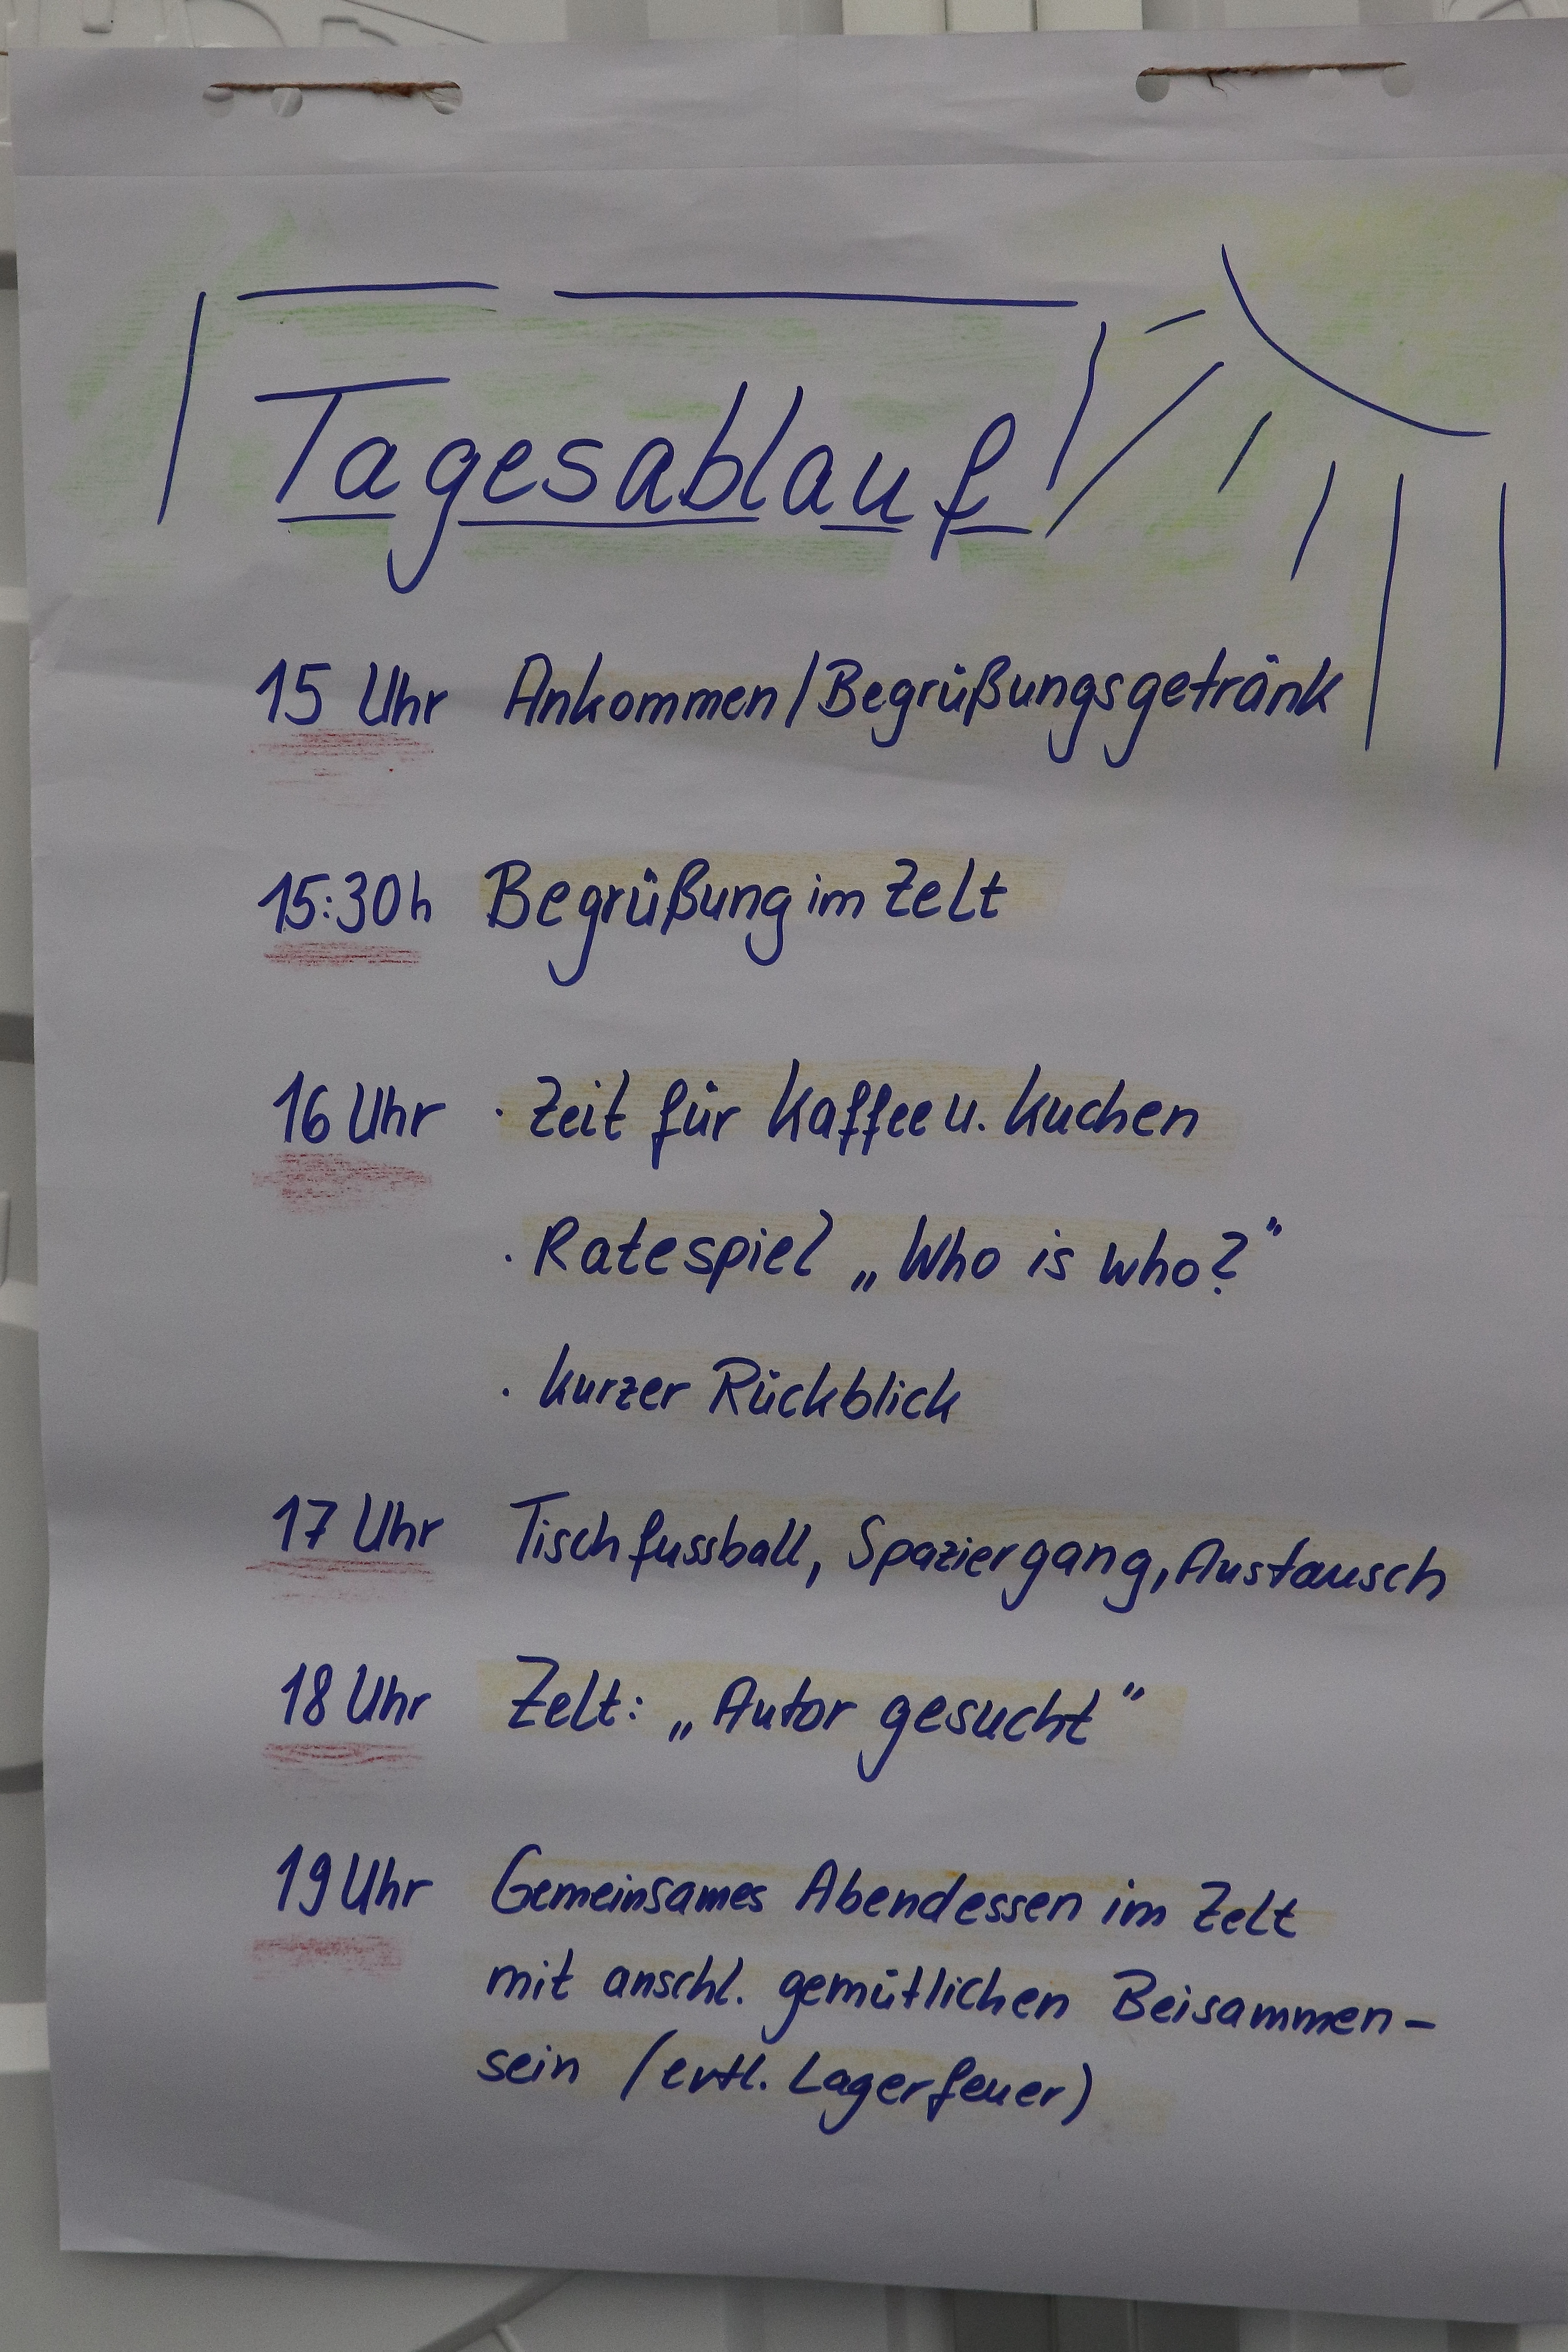 Tagesablauf
15 Uhr Ankommen/Begrüßungsgetränk
15:30h Begrüßung im Zelt
16 Uhr · Zeit für Kaffee u. Kuchen
· Ratespiel „Who is who?"
· kurzer Rückblick
17 Uhr Tischfussball, Spaziergang, Austausch
18 Uhr Zelt: „Autor gesucht"
19 Uhr Gemeinsames Abendessen im Zelt
mit anschl. gemütlichen Beisammen-
sein (evtl. Lagerfeuer)